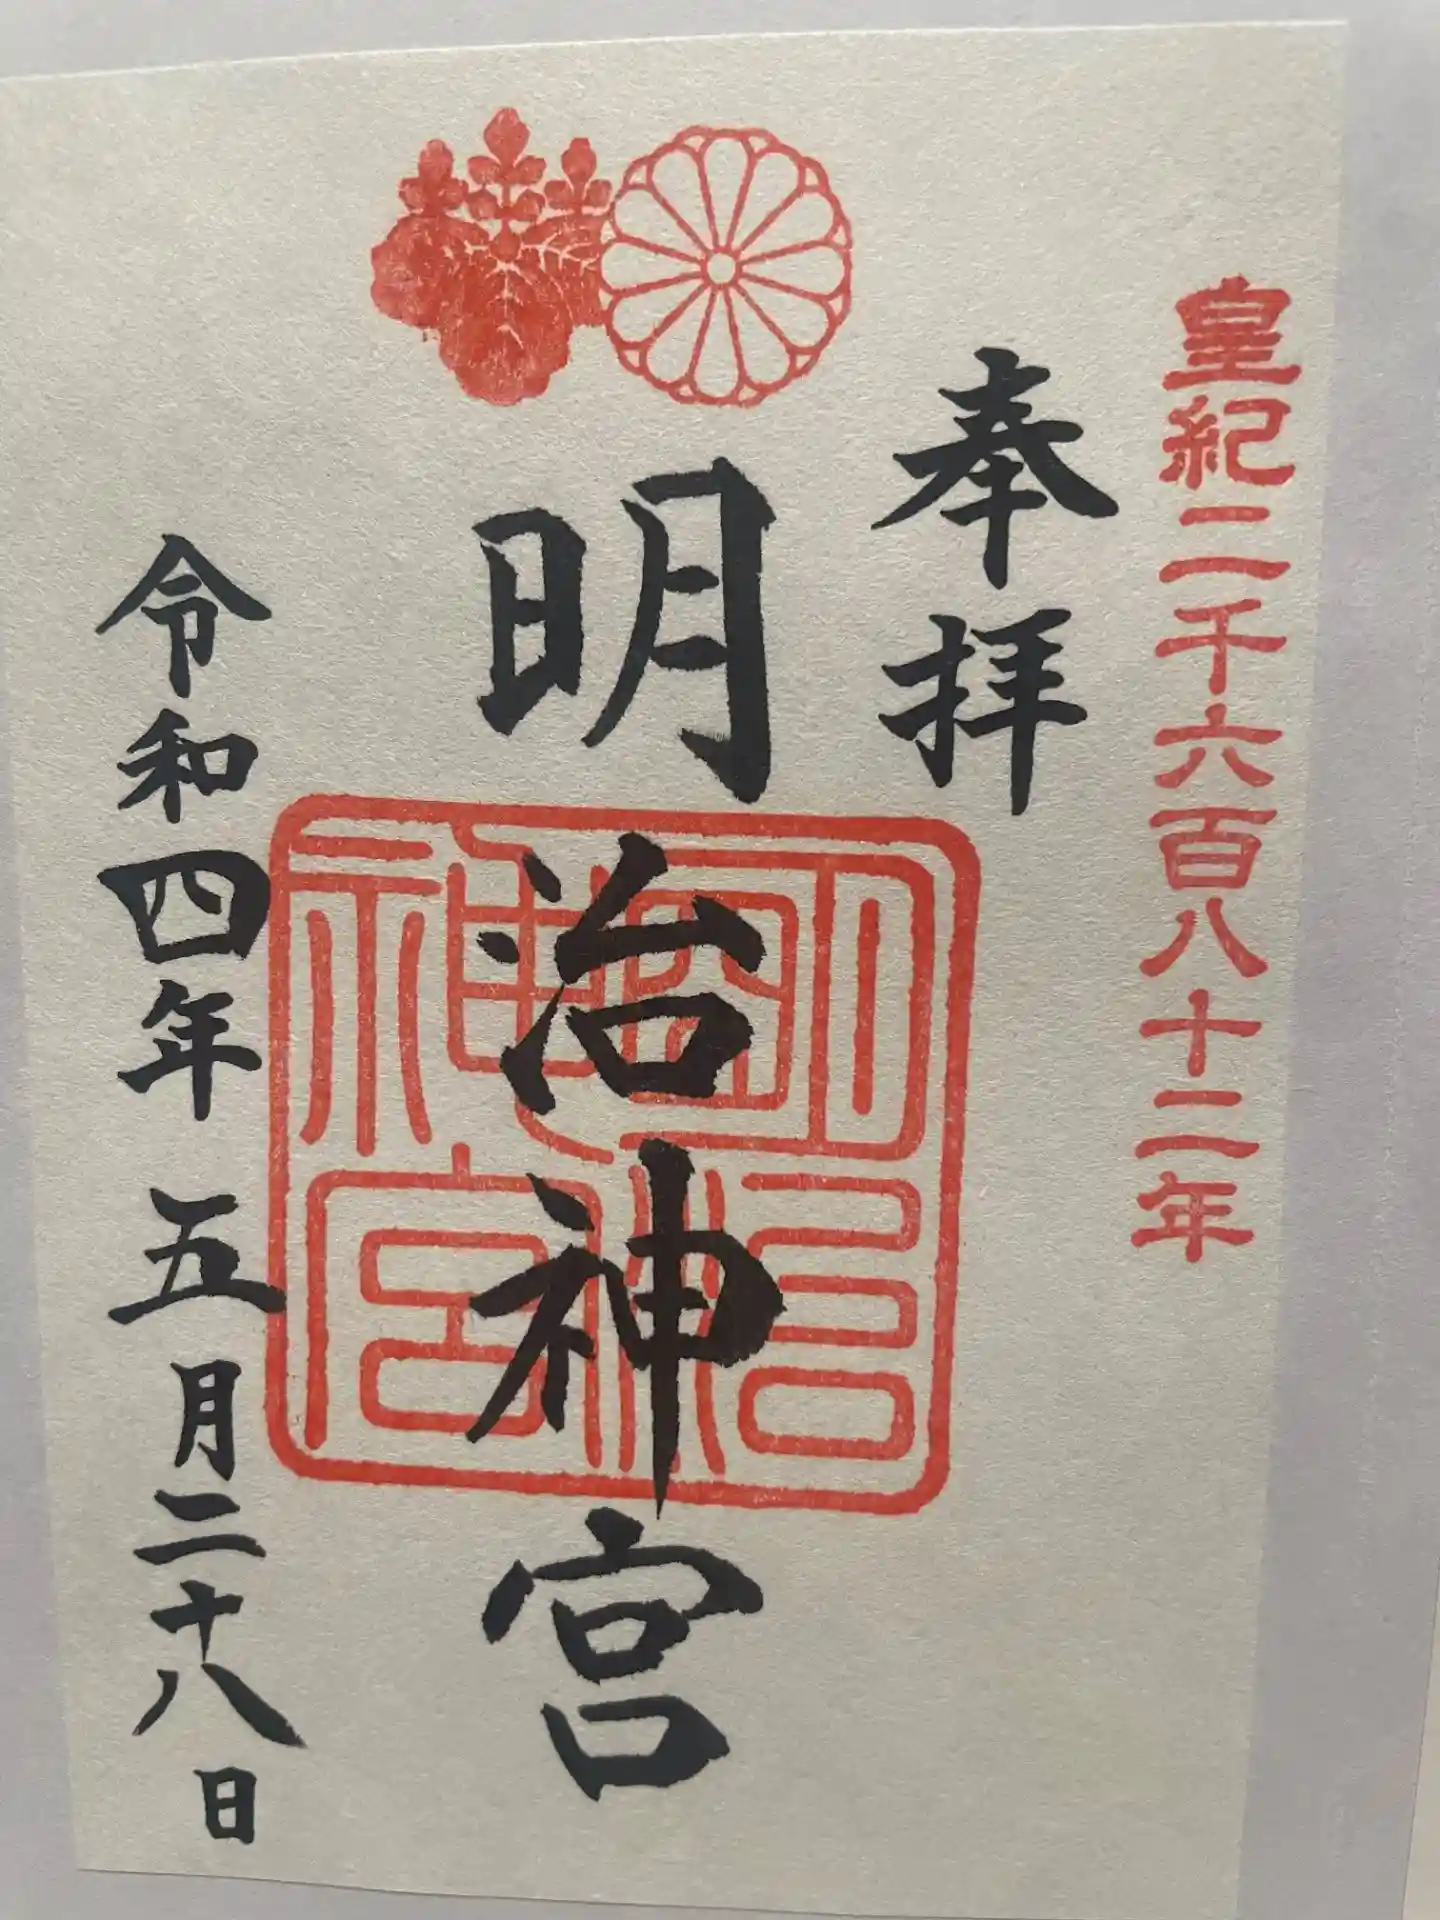 皇紀二千六百八十二年
奉拝
明治神宮
明治神宮
令和四年五月二十八日